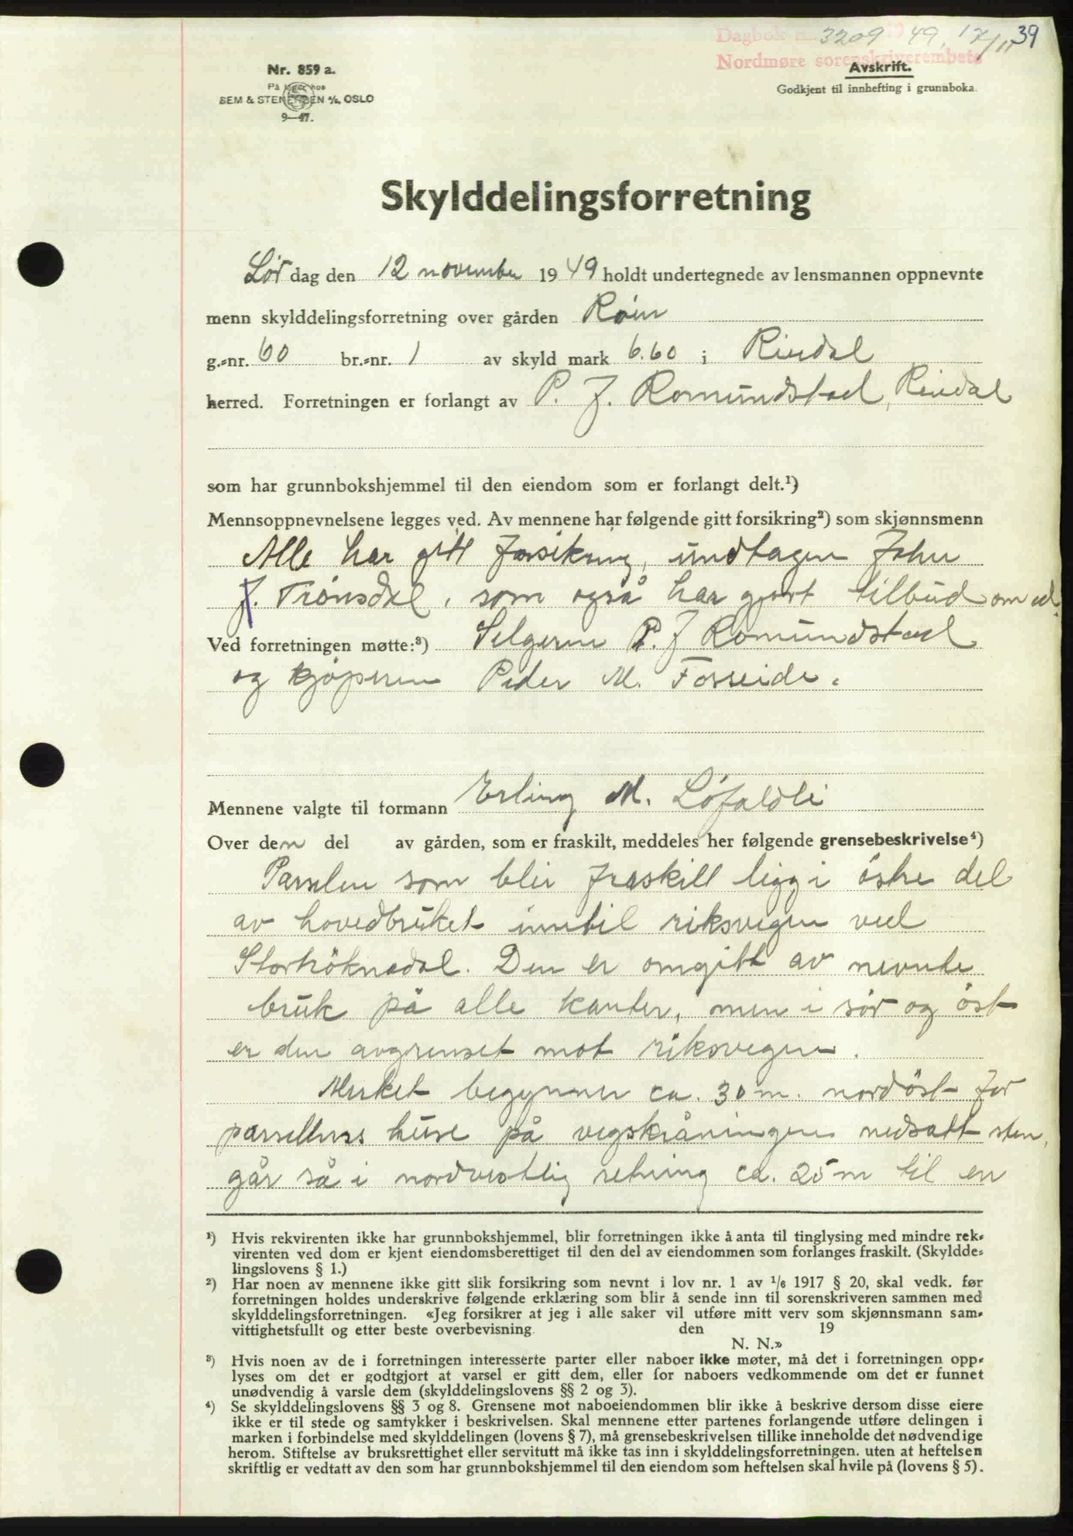 39
Dagbok 3209 49, 17/11
Nordmøre sorenskriverembete
Nr. 859 a.
På lager hos
SEM & STENERSEN A/S, OSLO
9—47.
Avskrift.
Godkjent til innhefting i grunnboka.
Skylddelingsforretning
Lørdag den 12 november 1949 holdt undertegnede av lensmannen oppnevnte
menn skylddelingsforretning over gården Røen
g.-nr. 60 br.-nr. 1 av skyld mark 6.60 i Rindal
herred. Forretningen er forlangt av P. J. Romundstad, Rindal
som har grunnbokshjemmel til den eiendom som er forlangt delt.¹)
Mennsoppnevnelsene legges ved. Av mennene har følgende gitt forsikring²) som skjønnsmenn
Alle har gitt forsikring, undtagen John
J. Trønsdal, som også har gjort tilbud om ed.
Ved forretningen møtte:³) Selgeren P. J Romundstad
og kjøperen Peder M. Forseide.
Mennene valgte til formann Erling M. Løfaldli
Over den del av gården, som er fraskilt, meddeles her følgende grensebeskrivelse⁴)
Parselen som blir fraskilt ligg i östre del
av hovedbruket inntil riksvegen ved
Storhöknadal. Den er omgitt av nevnte
bruk på alle kanter, men i sör og öst
er den avgrenset mot riksvegen.
Merket begynner ca. 30 m. nordöst for
parsellens huse på vegskråningen nedsatt sten,
går så i nordvestlig retning ca. 25 m til en
¹) Hvis rekvirenten ikke har grunnbokshjemmel, blir forretningen ikke å anta til tinglysing med mindre rek-
virenten ved dom er kjent eiendomsberettiget til den del av eiendommen som forlanges fraskilt. (Skyldde-
lingslovens § 1.)
²) Har noen av mennene ikke gitt slik forsikring som nevnt i lov nr. 1 av ¹/₆ 1917 § 20, skal vedk. før
forretningen holdes underskrive følgende erklæring som blir å sende inn til sorenskriveren sammen med
skylddelingsforretningen. «Jeg forsikrer at jeg i alle saker vil utføre mitt verv som skjønnsmann sam-
vittighetsfullt og etter beste overbevisning. den 19
N. N.»
³) Hvis noen av de i forretningen interesserte parter eller naboer ikke møter, må det i forretningen opp-
lyses om det er godtgjort at varsel er gitt dem, eller for naboers vedkommende om det er funnet
unødvendig å varsle dem (skylddelingslovens §§ 2 og 3).
⁴) Se skylddelingslovens §§ 3 og 8. Grensene mot naboeiendommen blir ikke å beskrive dersom disse eiere
ikke er til stede og samtykker i beskrivelsen. Skal mennene etter partenes forlangende utføre delingen i
marken i forbindelse med skylddelingen (lovens § 7), må grensebeskrivelsen tillike inneholde det nødvendige
herom. Stiftelse av bruksrettighet eller servitutt må ikke tas inn i skylddelingsforretningen, uten at heftelsen
skriftlig er vedtatt av den som har grunnbokshjemmel til den eiendom som heftelsen skal hvile på (lovens § 5).